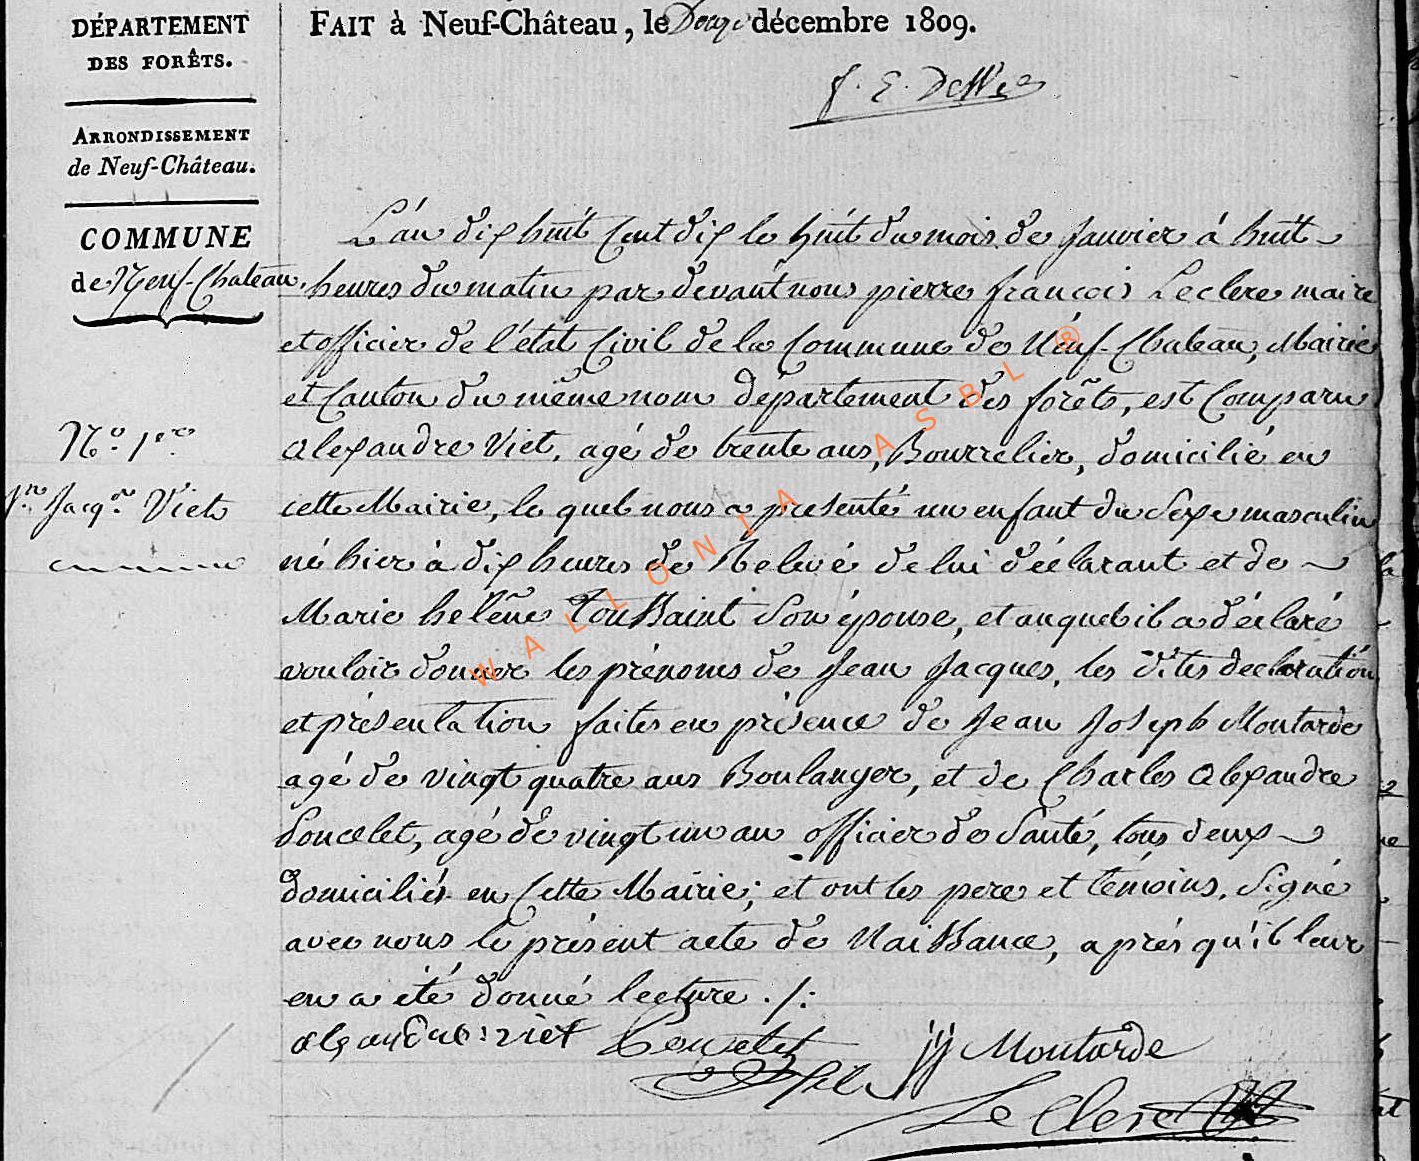 DÉPARTEMENT
DES FORÊTS.
ARRONDISSEMENT
de Neuf-Château.
COMMUNE
de Neuf-Chateau.
FAIT à Neuf-Château, le Douze décembre 1809.
N.o 1.er
Jn. Jacq. Viet
L'an dix huit Cent dix le huit du mois de Janvier à huit
heures du matin par devant nous pierre françois Leclerc maire
et officier de l'état Civil de la Commune de Neuf-Chateau, Mairie
et Canton du même nom département des forêts, est Comparu
alexandre Viet, agé de trente ans, Bourrelier, domicilié en
cette Mairie, le quel nous a presenté un enfant du Sexe masculin
né hier à dix heures de Relevé de lui déclarant et de
Marie heléne Toussaint Son épouse, et auquel il a déclaré
vouloir donner les prénoms de Jean Jacques, les dites declaration
et présentation faites en présence de Jean Joseph Moutarde
agé de vingt quatre ans Boulanger, et de Charles alexandre
Poncelet, agé de vingt un an officier de Santé, tous deux
domiciliés en Cette Mairie; et ont les pere et témoins, Signé
avec nous le présent acte de Naissance, aprés qu'il leur
en a été donné lecture ./:
alexandre viet Poncelet jj Moutarde
Le Clerc
WALLONIA ASBL ®